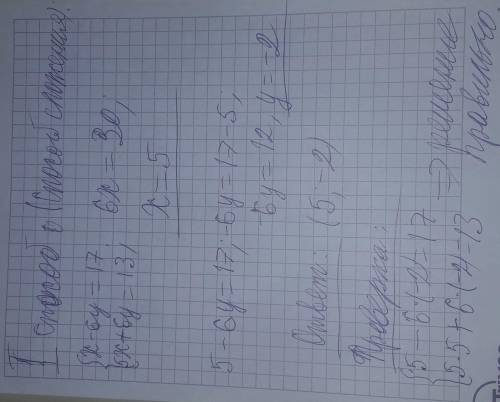 I способ (способ сложения):
{x-6y=17;
{5x+6y=13;
6x=30;
x=5
5-6y=17; -6y=17-5;
6y=12, y=-2
Ответ: (5; -2)
Проверка:
{5-6·(-2)=17
{5·5+6·(-2)=13
=> решение
правильно.